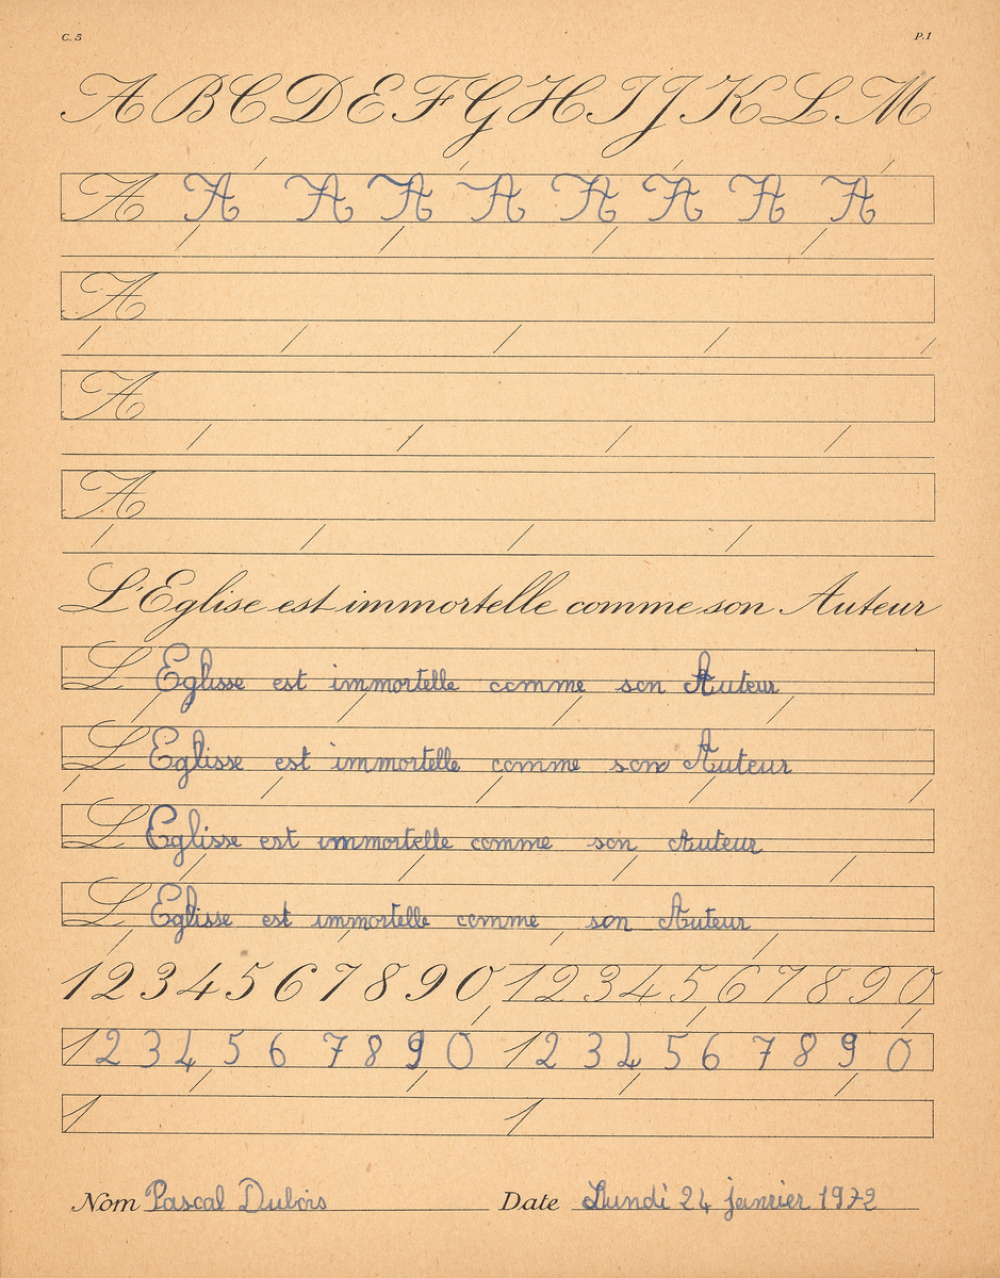 C. 5 P. 1
A B C D E F G H I J K L M
A A A A A A A A A
A
A
A
L'Eglise est immortelle comme son Auteur
L Eglisse est immortelle comme son Auteur
L Eglisse est immortelle comme son Auteur
L Eglisse est immortelle comme son Auteur
L Eglisse est immortelle comme son Auteur
1 2 3 4 5 6 7 8 9 0 1 2 3 4 5 6 7 8 9 0
1 2 3 4 5 6 7 8 9 0 1 2 3 4 5 6 7 8 9 0
1 1
Nom Pascal Dubois Date Lundi 24 janvier 1972